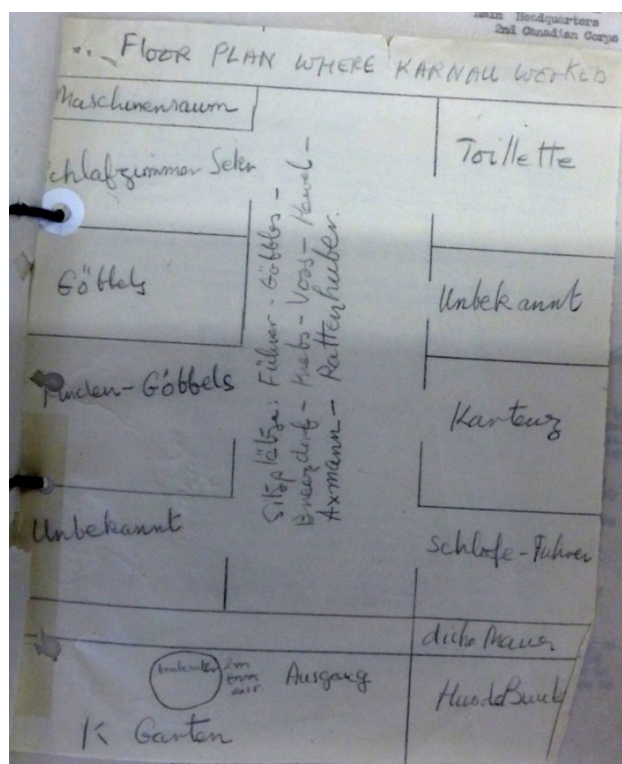 Main Headquarters
2nd Canadian Corps
FLOOR PLAN WHERE KARNAU WORKED
Maschinenraum
Schlafzimmer Sekr
Toillette
Göbbels
Unbekannt
Sitzplätze: Führer - Göbbels -
Krebs - Voss - Hawel -
Axmann - Rattenhuber.
Göbbels
Kartenz
Unbekannt
Schlafe-Führer
dicke Mauer
2m
Ausgang
K Garten